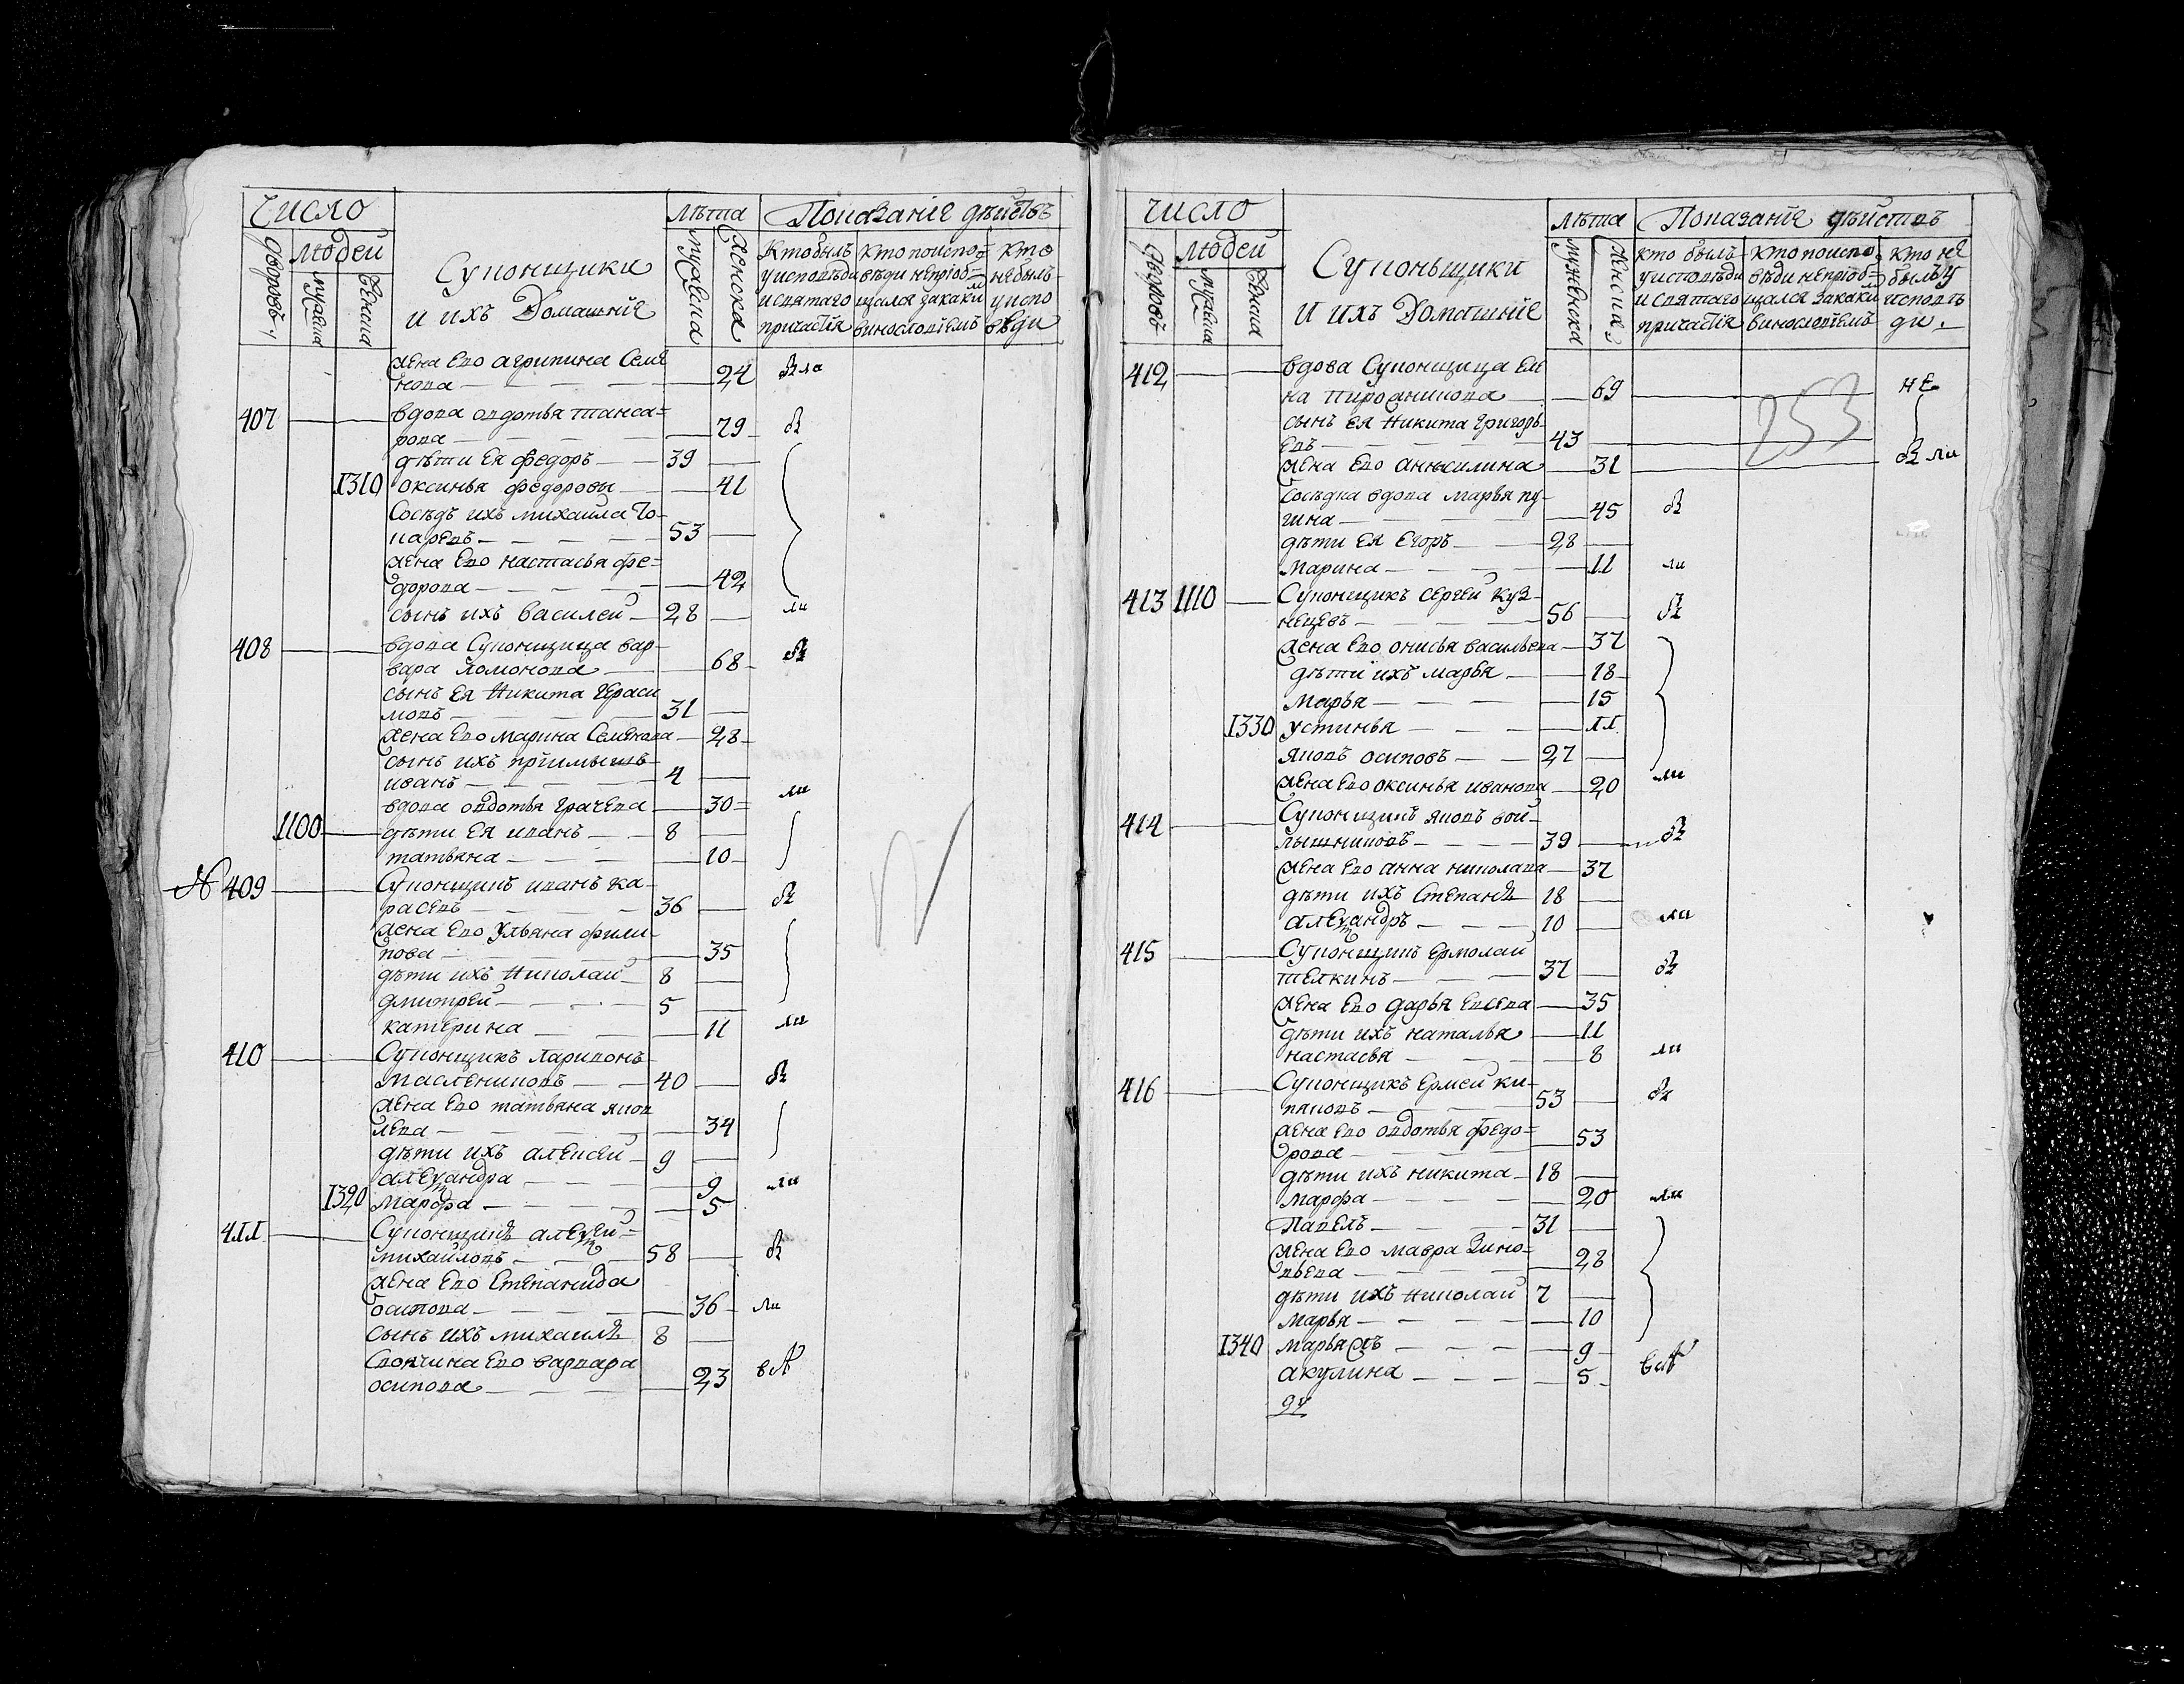 Число
Лѣта Показаніе дѣиствъ
дворовъ людей
мужеска
женска
Суконщики
и ихъ домашніе
мужеска
женска
Кто былъ
у исповѣди
и святаго
причастія
Кто по испо-
вѣди не пріоб-
щался за каким
винословіемъ
Кто
не былъ
у испо
вѣди
жена Ево Агрипина Семе
нова 24
407 вдова овдотья
79
дѣти Ея Федоръ 39
1310 оксинья федоровы 41
Сосѣдъ ихъ михаила То-
каревъ 53
жена Ево настасья фе-
дорова 42
сынъ ихъ василей 28 ли
408 вдова Суконщица вар-
вара 68
сынъ Ея Никита Гераси
мовъ 31
жена Ево марина Семенова 28
сынъ ихъ пріимышъ
иванъ 4
вдова овдотья грачева 30 ли
1100 дѣти Ея иванъ 8
татьяна 10
№ 409 Суконщикъ иванъ ка-
расевъ 36
жена Ево Ульяна фили-
пова 35
дѣти ихъ Николай 8
дмитрей 5
катерина 11 ли
410 Суконщикъ ларивонъ
маслениковъ 40
жена Ево татьяна яков
лева 34
дѣти ихъ алексей 9
александра 9 ли
1320 марфа 5
411 Суконщикъ алексей
михайловъ 58
жена Ево Степанида
осипова 36 ли
сынъ ихъ михаилъ 8
Своячина Ево варвара
осипова 23
число
лѣта Показаніе дѣйствъ
дворовъ людей
мужеска
женска
Суконьщики
и ихъ домашніе
мужеска
женска
кто былъ
у исповѣди
и святаго
причастія
Кто по испо-
вѣди не пріоб-
щался за каким
винословіемъ
Кто не
былъ у
исповѣ
ди.
412 вдова Суконщица Еле
на 69 не
253
сынъ ея Никита Григорь-
евъ 43
жена Ево 31 ли
Сосѣдка вдова марья пу-
гина 45
дѣти Ея Егоръ 28
марина 11 ли
413 1110 Суконщикъ Сергей Куз-
нецовъ 56
жена Ево онисья васильева 37
дѣти ихъ марья 18
марья 15
1330 устинья 11
яковъ осиповъ 27
жена Ево оксинья иванова 20 ли
414 Суконщикъ яковъ вой-
лошниковъ 39
жена Ево анна николаева 37
дѣти ихъ Степанъ 18
александръ 10 ли
415 Суконщикъ Ермолай
телкинъ 37
жена Ево дарья Евсева 35
дѣти ихъ наталья 11
настасья 8 ли
416 Суконщикъ Ермей ки-
пяковъ 53
жена Ево овдотья федо-
рова 53
дѣти ихъ никита 18
марфа 20 ли
Павелъ 31
жена Ево мавра Зино-
вьева 28
дѣти ихъ николай 7
марья 10
1340 марья жъ 9
акулина 5